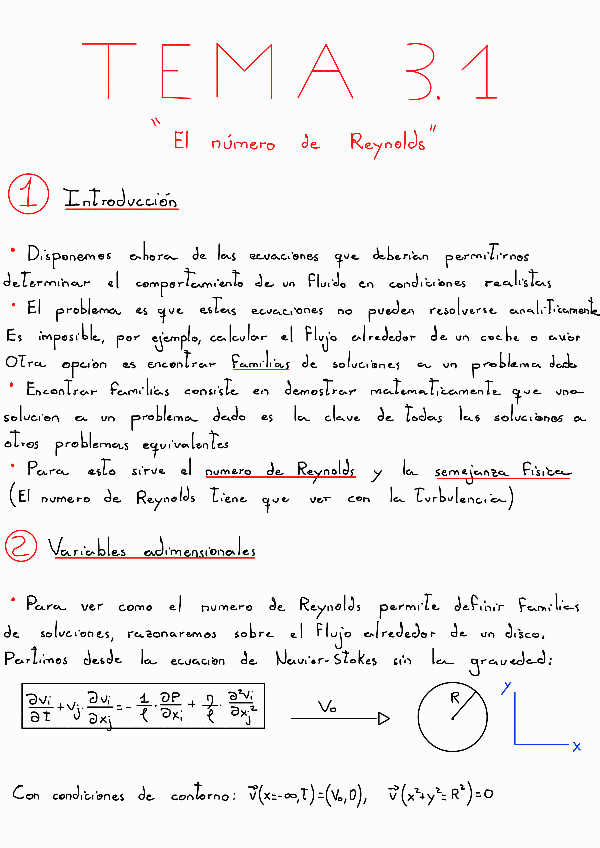 TEMA 3.1
"El número de Reynolds"
1 Introducción
• Disponemos ahora de las ecuaciones que deberían permitirnos
determinar el comportamiento de un fluido en condiciones realistas
• El problema es que estas ecuaciones no pueden resolverse analíticamente
Es imposible, por ejemplo, calcular el flujo alrededor de un coche o avión
Otra opción es encontrar familias de soluciones a un problema dado
• Encontrar familias consiste en demostrar matemáticamente que una
solución a un problema dado es la clave de todas las soluciones a
otros problemas equivalentes
• Para esto sirve el numero de Reynolds y la semejanza física
(El numero de Reynolds tiene que ver con la turbulencia)
2 Variables adimensionales
• Para ver como el numero de Reynolds permite definir familias
de soluciones, razonaremos sobre el flujo alrededor de un disco.
Partimos desde la ecuación de Navier-Stokes sin la gravedad:
∂vi/∂t + vj · ∂vi/∂xj = - 1/ρ · ∂P/∂xi + η/ρ · ∂²vi/∂xj²
V₀
R
y
x
Con condiciones de contorno: v⃗(x=-∞,t)=(V₀,0), v⃗(x²+y²=R²)=0